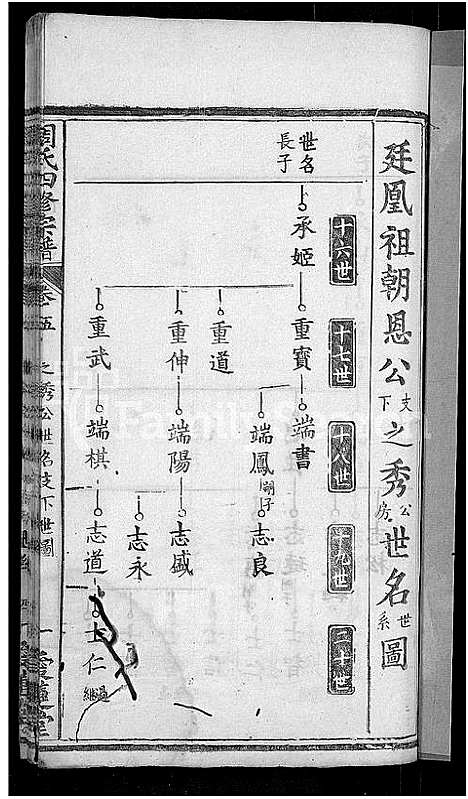 廷凰祖朝恩公支下之秀公房世名世系圖
十六世
十七世
十八世
十九世
二十世
世名長子
承姬
重寶
端書
端鳳 嗣子
志良
重道
重伸
端陽
志盛
志永
重武
端棋
志道
士仁 過繼
周氏四修宗譜
卷五
之秀公世名支下世圖
一
愛蓮堂